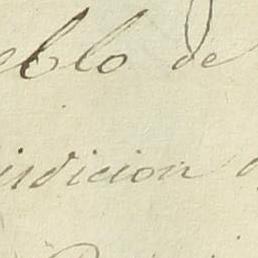 eblo de
isdicion